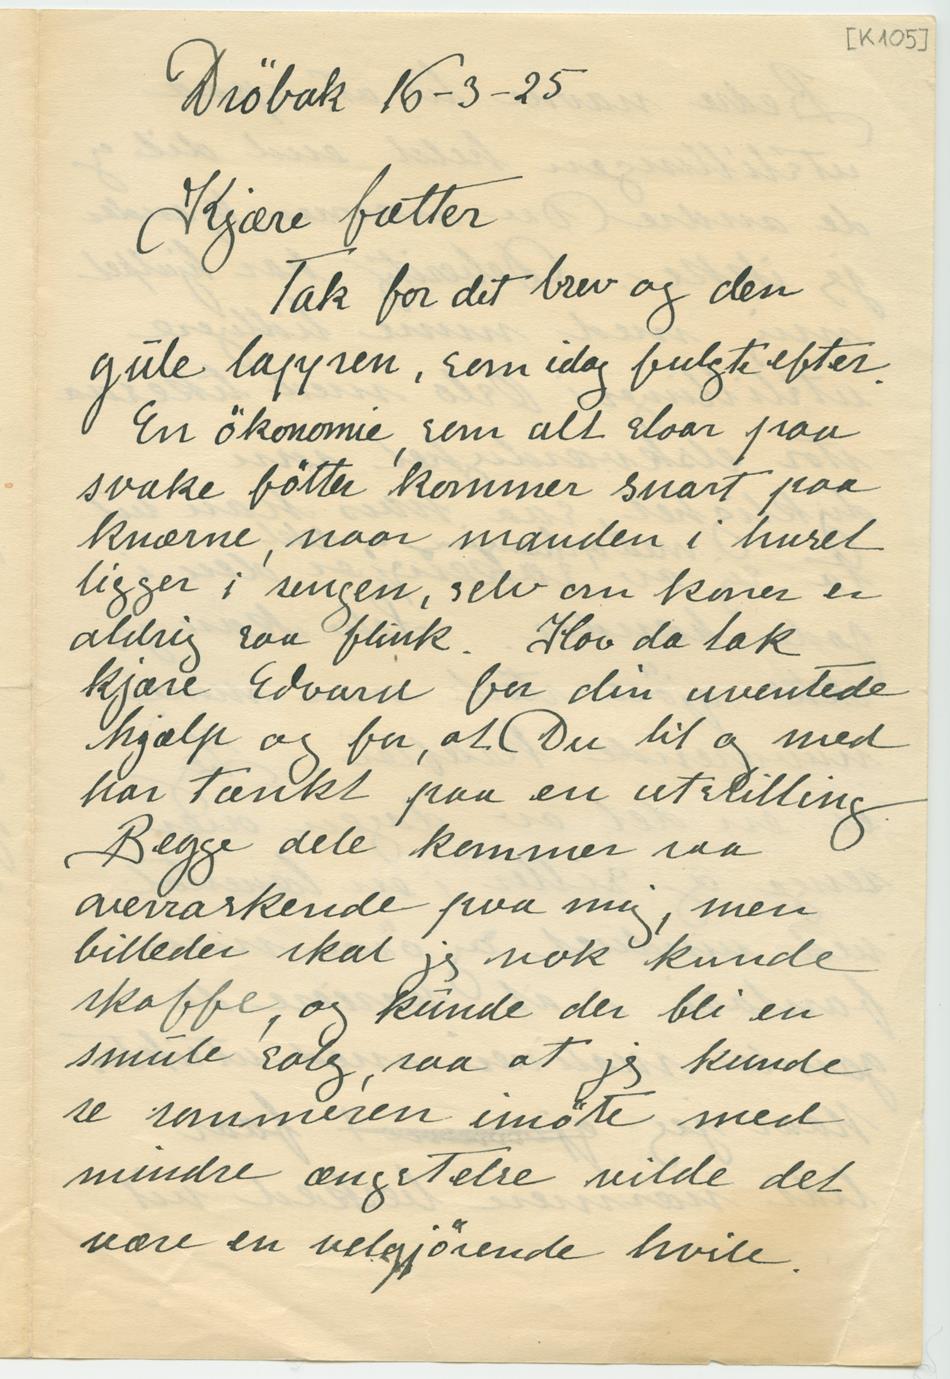 [K105]
Dröbak 16-3-25
Kjære fætter
Tak for dit brev og den
gule lapp, som idag fulgte efter.
En ökonomie, som alt staar paa
svake fötter kommer snart paa
knærne, naar manden i huset
ligger i sengen, selv om konen er
aldrig saa flink. Hav da tak
kjære Edvard for din uventede
hjælp og for, at Du til og med
har tænkt paa en utstilling
Begge dele kommer saa
overraskende paa mig, men
billeder skal jeg nok kunde
skaffe, og kunde der bli en
smule salg, saa at jeg kunde
se sommeren imöte med
mindre ængstelse vilde det
være en velgjörende hvile.